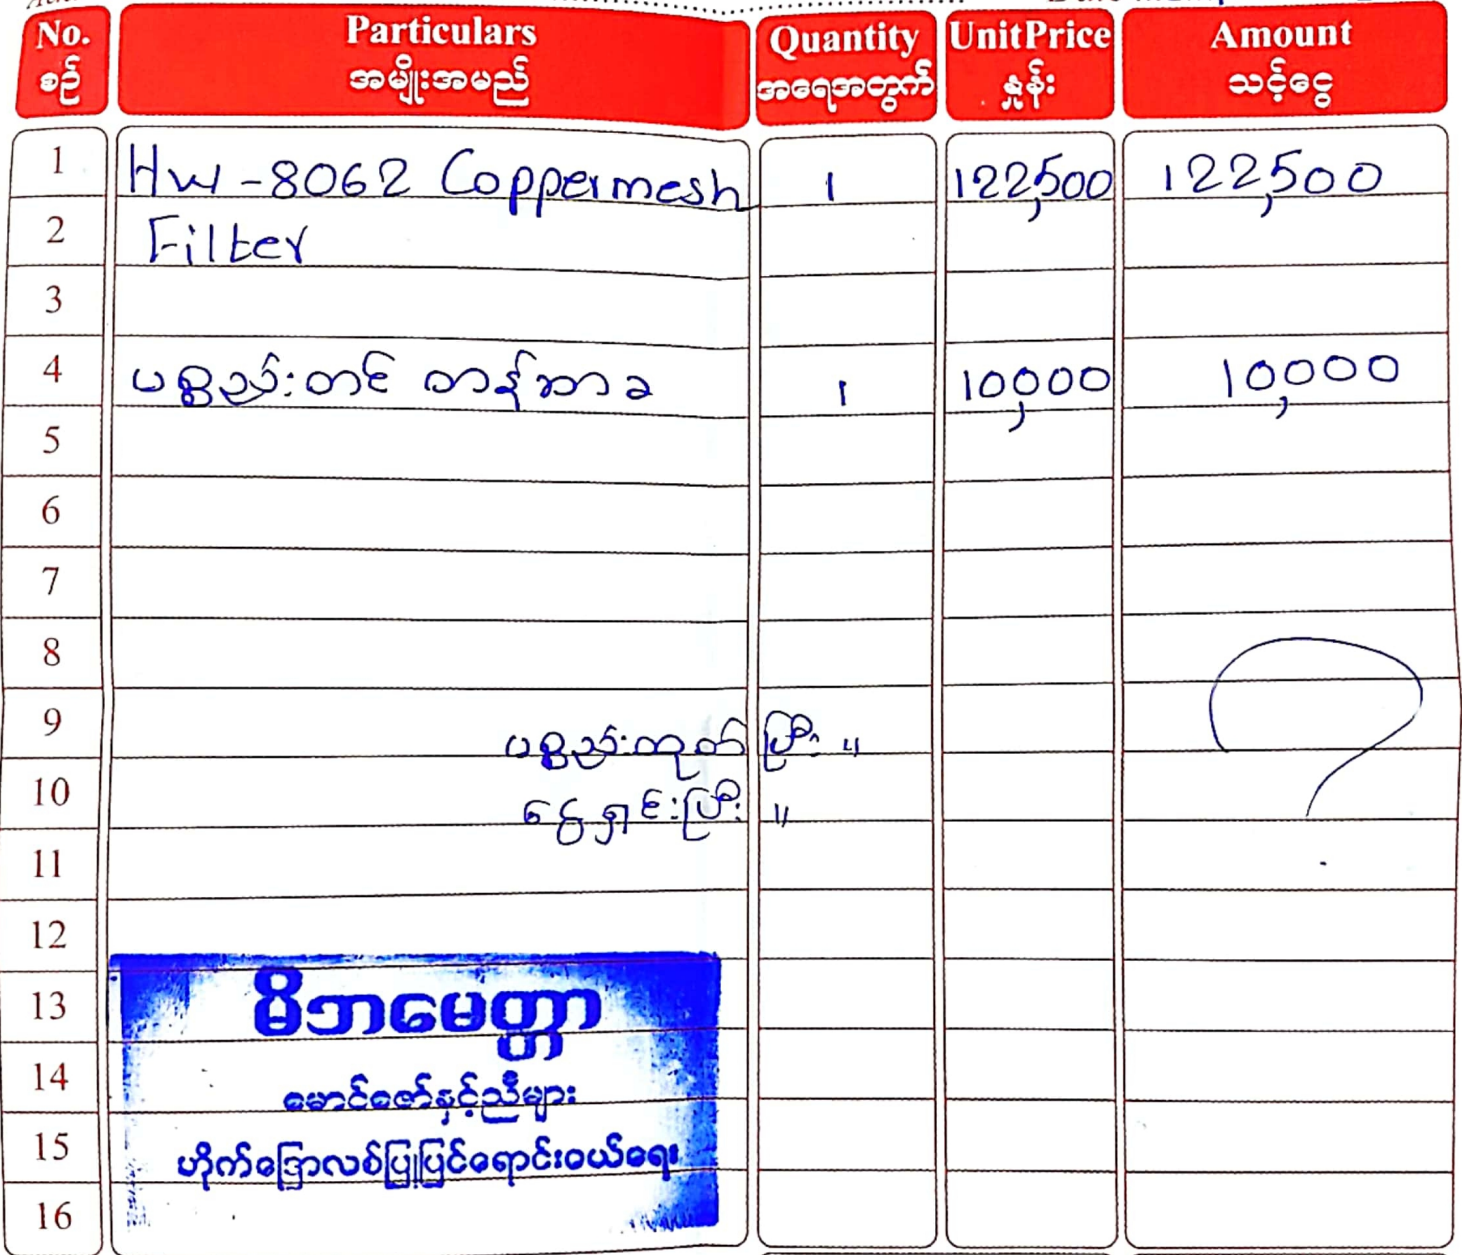 No. Particulars Quantity UnitPrice Amount
စဉ် အမျိုးအမည် အရေအတွက် နှုန်း သင့်ငွေ
1 HW-8062 Coppermesh 1 122,500 122,500
2 Filter
3
4 ပစ္စည်းတင် တန်ဆာခ 1 10,000 10,000
5
6
7
8
9 ပစ္စည်းထုတ်ပြီး ။
10 ငွေရှင်းပြီး ။
11
12
13 မိဘမေတ္တာ
14 မောင်ဇော်နှင့်ညီများ
15 ဟိုက်ဒြောလစ်ပြုပြင်ရောင်းဝယ်ရေး
16